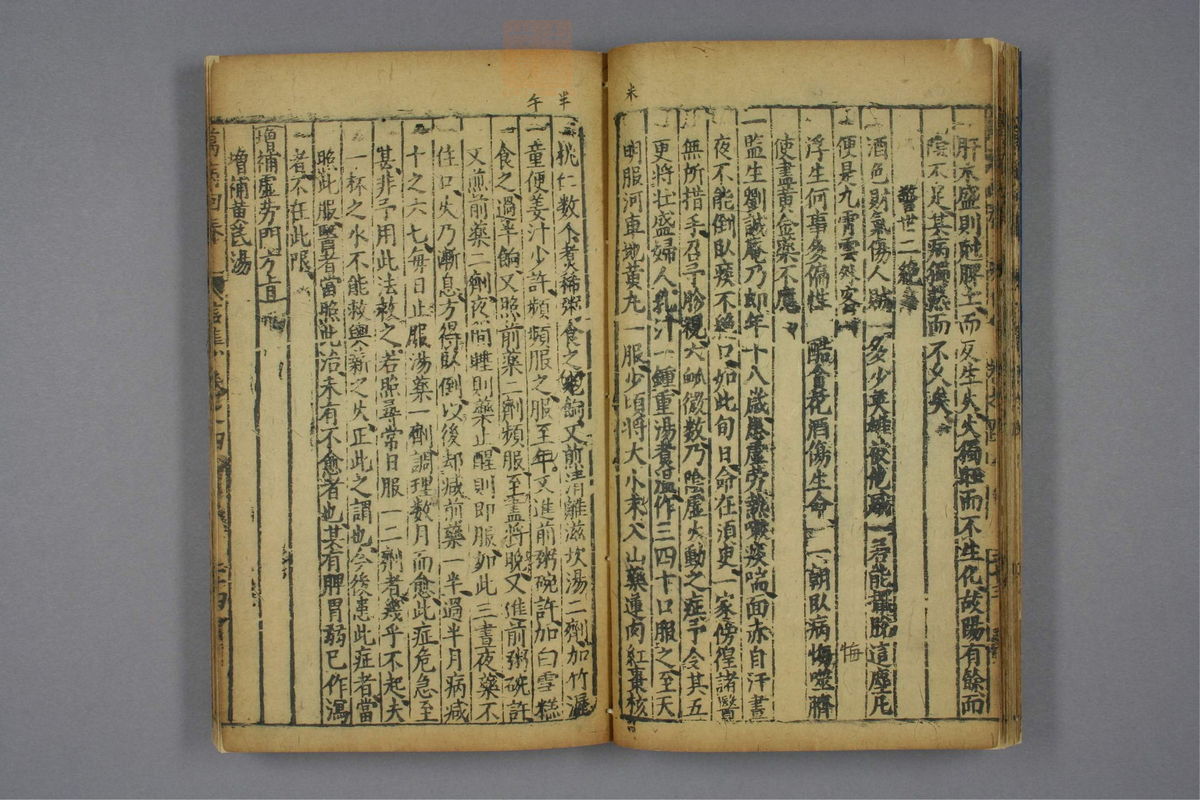 肝木盛則尅脾土而反生火火獨旺而不生化故陽有餘而
陰不足其病獨熱而不久矣
警世二絶
酒色財氣傷人賊 多少英雄被他惑 若能擺脫這塵凡
便是九霄雲外客
浮生何事多偏性 酷貪花酒傷生命 一朝臥病悔噬臍
悔
使盡黃金藥不應
一監生劉誠庵乃郎年十八歲患虛勞熱嗽痰喘面赤自汗晝
夜不能倒臥痰不絶口如此旬日命在須臾一家傍徨諸醫
無所措手召予胗視六脉微數乃陰虛火動之症予令其五
更將壯盛婦人乳汁一鍾重湯煮溫作三四十口服之至天
明服河車地黃丸一服少頃將大小米入山藥蓮肉紅棗核
米
半
午
桃仁數个煮稀粥食之 餉又煎清離滋坎湯二劑加竹瀝
童便姜汁少許頻頻服之服至年又進前粥碗許加白雪糕
食之過 餉又照前藥二劑頻服至盡將晚又進前粥碗許
又煎前藥二劑夜間睡則藥止醒則即服如此三晝夜藥不
住口火乃漸息方得臥倒以後却減前藥一半過半月病減
十之六七每日止服湯藥一劑調理數月而愈此症危急至
甚非予用此法救之若照尋常日服一二劑者幾乎不起夫
一杯之水不能救輿薪之火正此之謂也今後患此症者當
照此服醫者當照此治未有不愈者也其有脾胃弱已作瀉
者不在此限
增補虛勞門方
增補黃芪湯
萬病回春